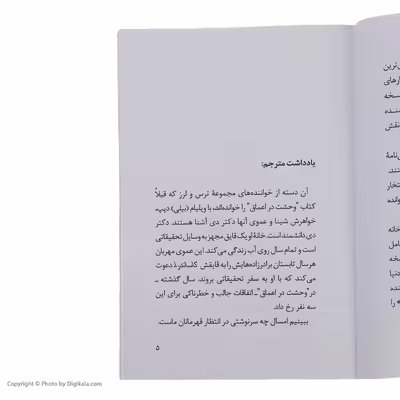 یادداشت مترجم:
آن دسته از خواننده‌های مجموعهٔ ترس و لرز که قبلاً
کتاب "وحشت در اعماق" را خوانده‌اند، با ویلیام (بیلی) دیپ،
خواهرش شینا و عموی آنها دکتر دی آشنا هستند. دکتر
دی دانشمند است. خانهٔ او یک قایق مجهز به وسایل تحقیقاتی
است و تمام سال روی آب زندگی می‌کند. این عموی مهربان
هر سال تابستان برادرزاده‌هایش را به قایقش دعوت
می‌کند که با او به سفر تحقیقاتی بروند. سال گذشته ـ
در "وحشت در اعماق" ـ اتفاقات جالب و خطرناکی برای این
سه نفر رخ داد.
ببینیم امسال چه سرنوشتی در انتظار قهرمانان ماست.
۵
Copyright © Photo by Digikala.com